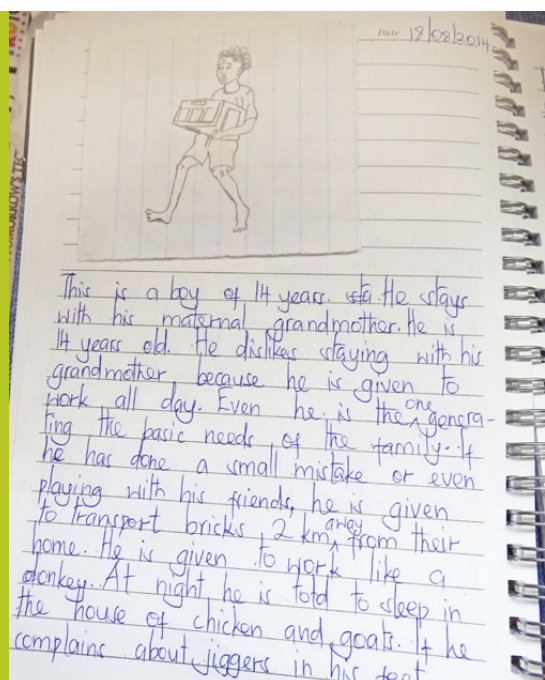 Date 18/08/2014
TOMORROW'S
This is a boy of 14 years. sta He stays
with his maternal grandmother. He is
14 years old. He dislikes staying with his
grandmother because he is given to
work all day. Even he is the one genera-
ting the basic needs of the family. If
he has done a small mistake or even
playing with his friends, he is given
to transport bricks, 2 km away from their
home. He is given to work like a
donkey. At night he is told to sleep in
the house of chicken and goats. If he
complains about jiggers in his feet